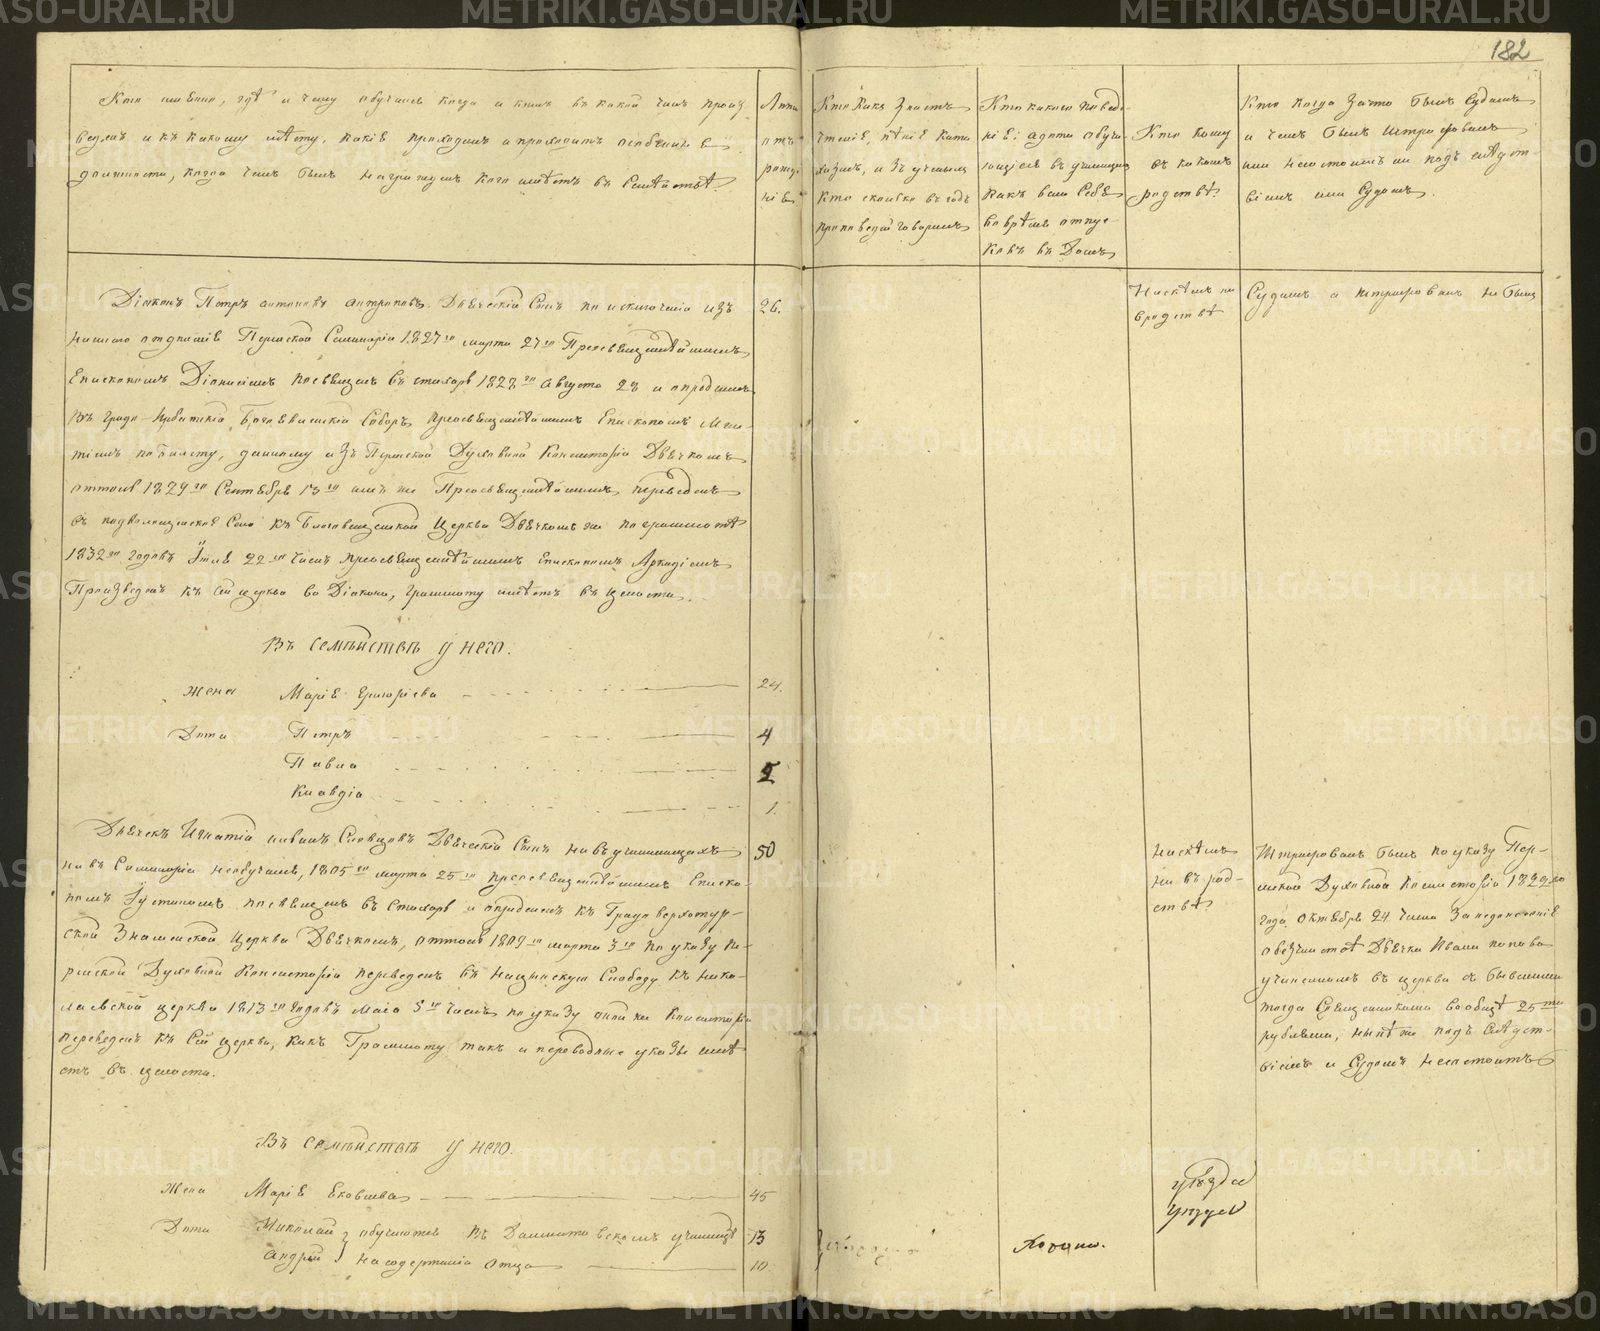 182
Кто именно, гдѣ и чему обучался когда и кѣмъ въ какой чинъ произ-
веденъ и къ какому мѣсту, какіе проходилъ и проходитъ особенные
должности, когда чемъ былъ награжденъ кого имѣетъ въ Семѣйствѣ?
Лѣта
отъ
рожде
нія
Кто какъ знаетъ
чтеніе, пѣніе кати
хизисъ, и зъ ученыхъ
кто сколько въ годъ
проповедей говорилъ
Кто какого поведе-
нія; а дети обуча
ющіеся въ училищахъ
какъ вели Себя
во врѣмя отпус-
ковъ въ Домъ
Кто кому
въ какомъ
родствѣ?
Кто когда за что былъ Судимъ
и чемъ былъ штрафованъ
или не состоитъ ли подъ слѣдст-
віемъ или Судомъ.
Діаконъ Петръ Дьяческій Сынъ по исключеніи изъ
нисшаго отдѣленія Пермской Семинаріи 1827го марта 27го Преосвященнѣйшимъ
Епископомъ Діонисіемъ посвященъ въ стихарь 1828го Августа 28 и опредѣленъ
въ градо-Ирбитскій Богоявленскій Соборъ Преосвященнѣйшимъ Епископомъ Меле-
тіемъ по билету, данному изъ Пермской Духовной Консисторіи Дьячкомъ
оттоль 1829го Сентября 13го имъ же Преосвященнѣйшимъ переведенъ
въ Село къ Благовещенской Церкви Дьячкомъ же по грамотѣ
1832го годовъ 22го числа преосвященнѣйшимъ Епископомъ Аркадіемъ
Произведенъ къ сей церкви во Діакона, грамоту имѣетъ въ целости.
26.
Ни съ кѣмъ не
в родствѣ
Судимъ и штрафованъ не былъ
Въ семѣйствѣ у него.
Жена Марія Григоріева 24.
Дети Петръ 4
Павла 2
Клавдіа 1.
Дьячекъ Игнатій Словцовъ Дьяческій Сынъ ни въ училищахъ
ни въ Семинаріи необучался, 1805го марта 25го преосвященнѣйшимъ Еписко-
помъ Іустиномъ посвященъ въ Стихарь и опредѣленъ къ Градо верхотур-
ской Знаменской Церкви Дьячкомъ, оттоль 1809го марта 3го по указу Пе-
рмской Духовной Консисторіи переведенъ въ Ницынскую Слободу къ Нико-
лаевской церкви 1813го годовъ Маіа 5го числа по указу оной же Консисторіи
переведенъ къ Сей церкви, какъ Грамоту такъ и переводные указы имѣ
етъ въ целости.
50
Ни съ кѣмъ
не въ род-
ствѣ?
Штрафованъ былъ по указу Пер-
мской Духовной Консисторіи 1829го
года Октября 24 числа за недонесеніе
о безчинствѣ Дьячка Ивана попова
учиненномъ въ церкви съ бывшими
тогда Священниками вообще 25тью
рублями, нынѣ же подъ Слѣдст-
віемъ и Судомъ не состоитъ
Въ семѣйствѣ у него.
Жена Марія 45
Дети Николай 13
Андрей 10
обучаются въ Далматовскомъ училищѣ
на содержаніи отца
Хороши.